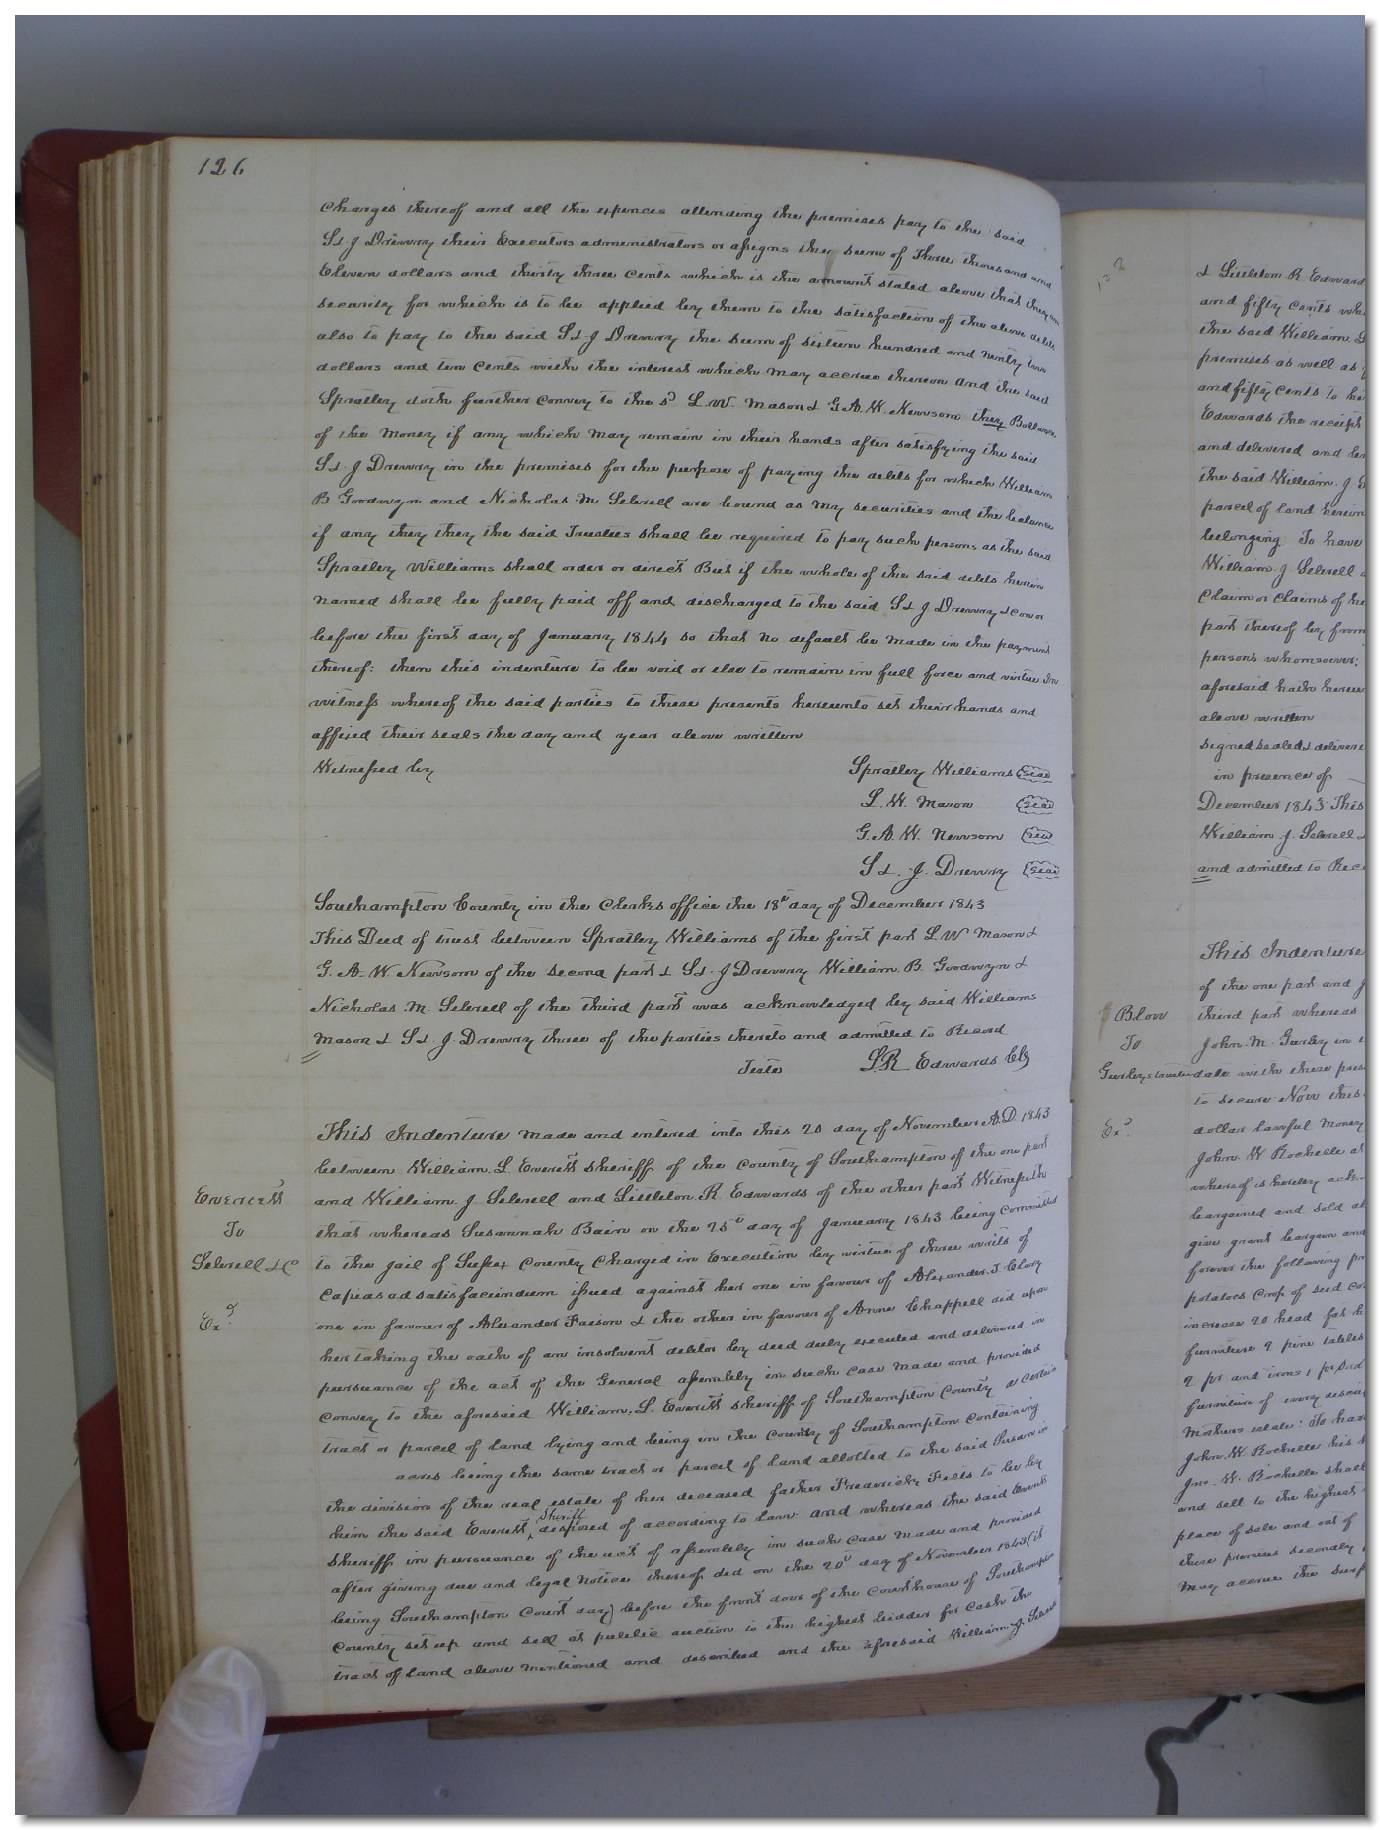 126
charges thereof and all the expences attending the premises pay to the said
S & J Drewry their Executors administrators or assigns the sum of Three thousand and
Eleven dollars and thirty three cents which is the amount stated above that they are
security for which is to be applied by them to the satisfaction of the above debts
also to pay to the said S & J Drewry the sum of sixteen hundred and ninty two
dollars and ten cents with the interest which may accrue thereon And the said
Spratley doth further convey to the sd L. W. Mason & G. A. W. Newsom they Ballance
of the money if any which may remain in their hands after satisfying the said
S & J Drewry in the premises for the purpose of paying the debts for which William
B Goodwyn and Nicholas M. Sebrell are bound as my securities and the balance
if any they they the said Trustees shall be required to pay such persons as the said
Spratley Williams shall order or direct But if the whole of the said debts herein
named shall be fully paid off and discharged to the said S & J Drewry & co on or
before the first day of January 1844 so that no default be made in the payment
thereof: then this indenture to be void or else to remain in full force and virtue In
witness whereof the said parties to these presents hereunto set their hands and
affixed their seals the day and year above written
Witnessed by
Spratley Williams seal
L. W. Mason seal
G. A. W. Newsom seal
S & J. Drewry seal
Southampton County in the Clerks office the 18th day of December 1843
This Deed of trust between Spratley Williams of the first part L W Mason &
G. A. W. Newsom of the second part & S & J Drewry William. B. Goodwyn &
Nicholas. M. Sebrell of the third part was acknowledged by said Williams
Mason & S & J. Drewry three of the parties thereto and admitted to Record
Teste L. R. Edwards Clk
Everett
To
Sebrell & Co
Exd.
This Indenture made and entered into this 20 day of November A.D. 1843
between William. L. Everett sheriff of the county of Southampton of the one part
and William. J. Sebrell and Littleton. R. Edwards of the other part Witnesseth
that whereas Susannah Bain on the 25th day of January 1843 being committed
to the jail of Sussex County charged in Execution by virtue of three writs of
Capias ad satisfaciendum issued against her one in favour of Alexander. T. Clory
one in favour of Alexander Faison & the other in favour of Anne Chappell did upon
her taking the oath of an insolvent debtor by deed duly executed and delivered in
pursuance of the act of the General assembly in such case made and provided
convey to the aforesaid William. L. Everett sheriff of Southampton County a certain
tract or parcel of land lying and being in the county of Southampton containing
acres being the same tract or parcel of land allotted to the said Susan in
the division of the real estate of her deceased father Frederick Felts to be by
him the said Everett, Sheriff disposed of according to law and whereas the said Everett
sheriff in pursuance of the act of assembly in such case made and provided
after giving due and legal notice thereof did on the 20th day of November 1843 (it
being Southampton Court day) before the front door of the Courthouse of Southampton
County set up and sell at public auction to the highest bidder for cash the
tract of land above mentioned and described and the aforesaid William. J. Sebrell
& Littleton R Edwards
and fifty cents
the said William
premises as well as
and fifty cents to
Edwards the receipt
and delivered and
the said William. J
parcel of land herein
belonging. To have
William. J. Sebrell
Claim or Claims of
part thereof by from
persons whomsoever:
aforesaid hath
above written
signed sealed &
in presence of
December 1843 This
William. J. Sebrell
and admitted to
Blow
To
Gurleys trustee
Exd.
This Indenture
of the one part and
third part whereas
John. M. Gurley
date with these
to secure Now this
dollar lawful money
John. W Rochelle
whereof is hereby
bargained and sold
give grant bargain and
forever the following
potatoes crop of
increase 20 head
furniture 2 pine tables
2 pr and irons 1
furniture of every
Mothers estate: To have
John. W Rochelle his
Jno. W. Rochelle shall
and sell to the highest
place of sale and out of
these premises secondly
may accrue the